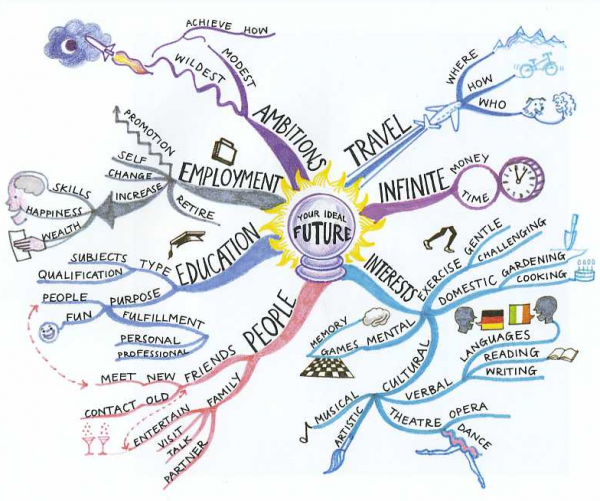 YOUR IDEAL
FUTURE
AMBITIONS
MODEST
WILDEST
ACHIEVE HOW
TRAVEL
WHERE
HOW
WHO
INFINITE
MONEY
TIME
INTERESTS
EXERCISE
GENTLE
CHALLENGING
DOMESTIC
GARDENING
COOKING
MENTAL
MEMORY
GAMES
CULTURAL
VERBAL
LANGUAGES
READING
WRITING
THEATRE
OPERA
DANCE
MUSICAL
ARTISTIC
PEOPLE
FRIENDS
NEW
MEET
OLD
CONTACT
FAMILY
ENTERTAIN
VISIT
TALK
PARTNER
EDUCATION
TYPE
SUBJECTS
QUALIFICATION
PURPOSE
PEOPLE
FUN
FULFILLMENT
PERSONAL
PROFESSIONAL
EMPLOYMENT
PROMOTION
SELF
CHANGE
INCREASE
SKILLS
HAPPINESS
WEALTH
RETIRE